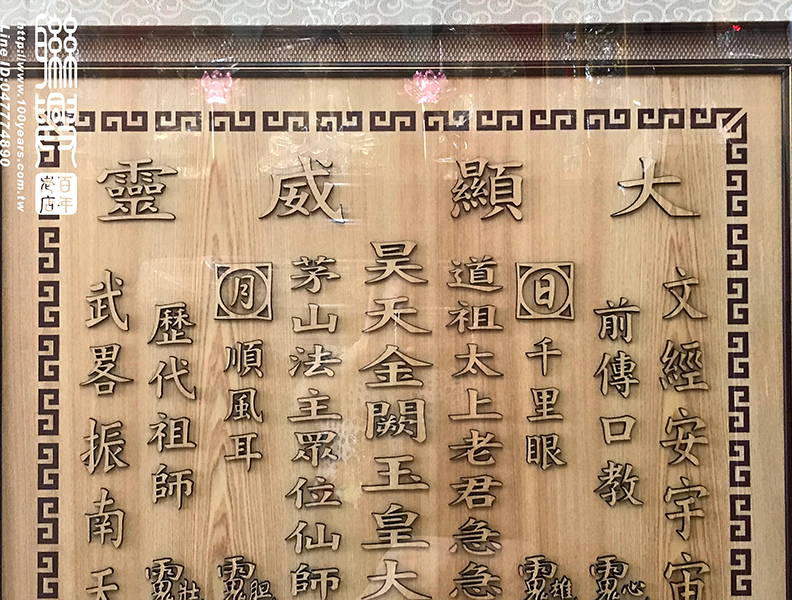 大顯威靈
文經安宇宙
前傳口教
日千里眼
道祖太上老君急急
昊天金闕玉皇大
茅山法主眾位仙師
月順風耳
歷代祖師
武畧振南天
百年老店
http://www.100years.com.tw
Line ID:047774890